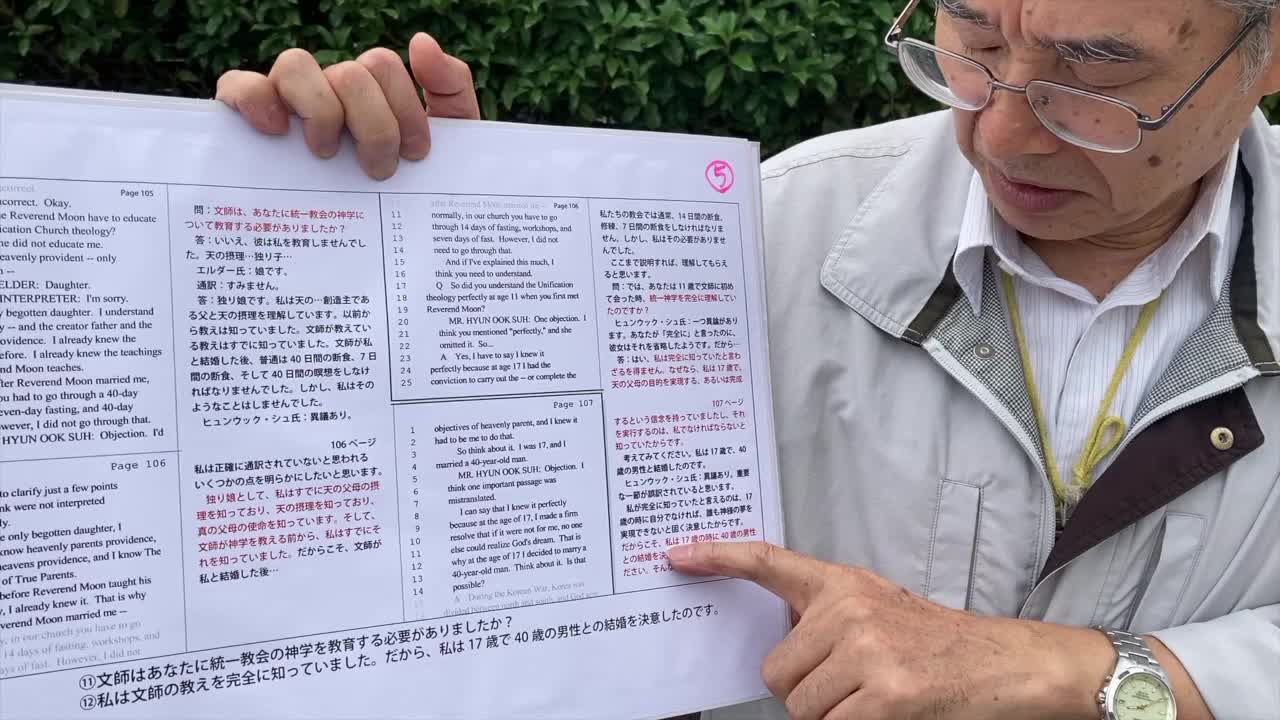 ⑤
ncorrect.
ncorrect. Okay.
Page 105
e Reverend Moon have to educate
ication Church theology?
he did not educate me.
heavenly provident -- only
n --
ELDER: Daughter.
INTERPRETER: I'm sorry.
y begotten daughter. I understand
y -- and the creator father and the
ovidence. I already knew the
efore. I already knew the teachings
nd Moon teaches.
fter Reverend Moon married me,
ou had to go through a 40-day
even-day fasting, and 40-day
owever, I did not go through that.
HYUN OOK SUH: Objection. I'd
Page 106
to clarify just a few points
nk were not interpreted
ly.
e only begotten daughter, I
know heavenly parents providence,
heavens providence, and I know The
of True Parents.
before Reverend Moon taught his
y, I already knew it. That is why
verend Moon married me --
y, in our church you have to go
14 days of fasting, workshops, and
days of fast. However, I did not
問:文師は、あなたに統一教会の神学に
ついて教育する必要がありましたか?
答:いいえ、彼は私を教育しませんでし
た。天の摂理…独り子…
エルダー氏:娘です。
通訳:すみません。
答:独り娘です。私は天の…創造主であ
る父と天の摂理を理解しています。以前か
ら教えは知っていました。文師が教えてい
る教えはすでに知っていました。文師が私
と結婚した後、普通は40日間の断食、7日
間の断食、そして40日間の瞑想をしなけ
ればなりませんでした。しかし、私はその
ようなことはしませんでした。
ヒュンウック・シュ氏:異議あり。
106 ページ
私は正確に通訳されていないと思われる
いくつかの点を明らかにしたいと思います。
独り娘として、私はすでに天の父母の摂
理を知っており、天の摂理を知っており、
真の父母の使命を知っています。そして、
文師が神学を教える前から、私はすでにそ
れを知っていました。だからこそ、文師が
私と結婚した後…
after Reverend Moon married me --
Page 106
11 normally, in our church you have to go
12 through 14 days of fasting, workshops, and
13 seven days of fast. However, I did not
14 need to go through that.
15 And if I've explained this much, I
16 think you need to understand.
17 Q So did you understand the Unification
18 theology perfectly at age 11 when you first met
19 Reverend Moon?
20 MR. HYUN OOK SUH: One objection. I
21 think you mentioned "perfectly," and she
22 omitted it. So...
23 A Yes, I have to say I knew it
24 perfectly because at age 17 I had the
25 conviction to carry out the -- or complete the
Page 107
1 objectives of heavenly parent, and I knew it
2 had to be me to do that.
3 So think about it. I was 17, and I
4 married a 40-year-old man.
5 MR. HYUN OOK SUH: Objection. I
6 think one important passage was
7 mistranslated.
8 I can say that I knew it perfectly
9 because at the age of 17, I made a firm
10 resolve that if it were not for me, no one
11 else could realize God's dream. That is
12 why at the age of 17 I decided to marry a
13 40-year-old man. Think about it. Is that
14 possible?
A During the Korean War, Korea was
divided between north and south, and God sent
私たちの教会では通常、14日間の断食、
修練、7日間の断食をしなければなりま
せん。しかし、私はその必要がありませ
んでした。
ここまで説明すれば、理解してもらえ
ると思います。
問:では、あなたは11歳で文師に初め
て会った時、統一神学を完全に理解してい
たのですか?
ヒュンウック・シュ氏:一つ異論があり
ます。あなたが「完全に」と言ったのに、
彼女はそれを省略したようです。だから…
答:はい、私は完全に知っていたと言わ
ざるを得ません。なぜなら、私は17歳で、
天の父母の目的を実現する、あるいは完成
107 ページ
するという信念を持っていましたし、それ
を実行するのは、私でなければならないと
知っていたからです。
考えてみてください。私は17歳で、40
歳の男性と結婚したのです。
ヒュンウック・シュ氏:異議あり。重要
な一節が誤訳されていると思います。
私が完全に知っていたと言えるのは、17
歳の時に自分でなければ、誰も神様の夢を
実現できないと固く決意したからです。
だからこそ、私は17歳の時に40歳の男性
との結婚を決
ださい。そんな
⑪文師はあなたに統一教会の神学を教育する必要がありましたか?
⑫私は文師の教えを完全に知っていました。だから、私は17歳で40歳の男性との結婚を決意したのです。